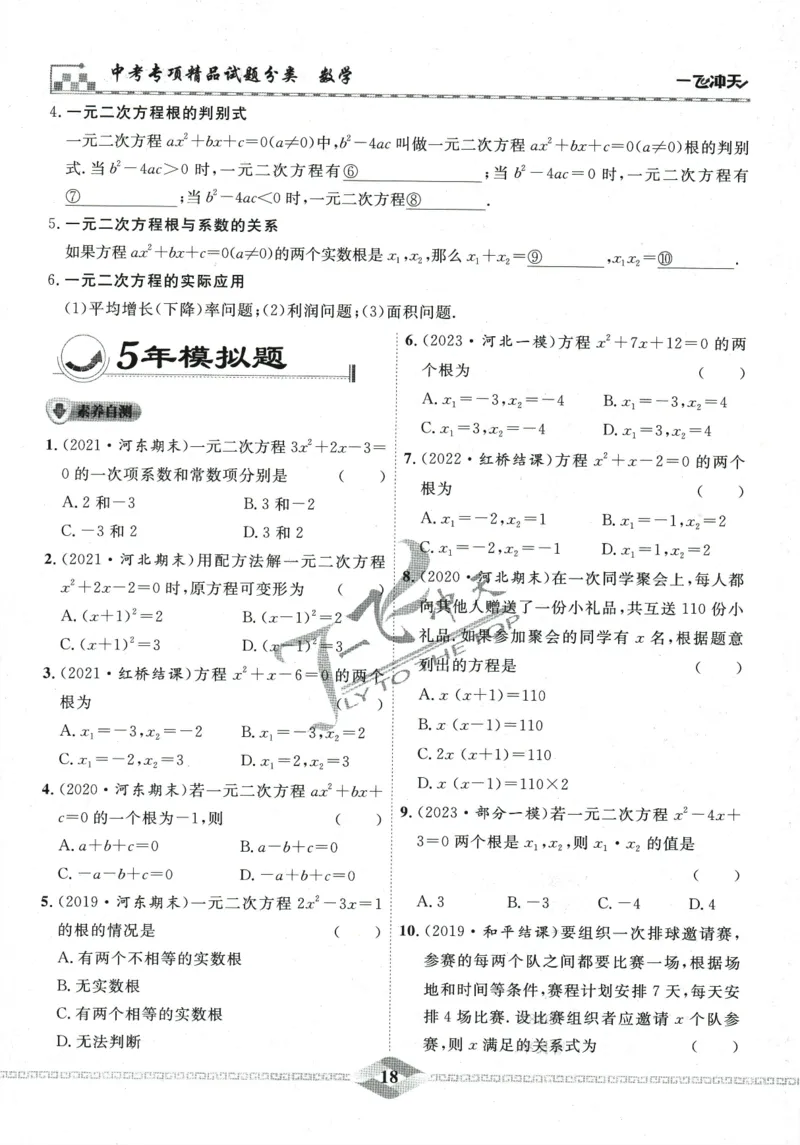 中考专项精品试题分类 数学
一飞冲天
4. 一元二次方程根的判别式
一元二次方程 ax²+bx+c=0(a≠0)中,b²-4ac 叫做一元二次方程 ax²+bx+c=0(a≠0)根的判别
式. 当 b²-4ac>0 时,一元二次方程有⑥____________;当 b²-4ac=0 时,一元二次方程有
⑦____________;当 b²-4ac<0 时,一元二次方程⑧________.
5. 一元二次方程根与系数的关系
如果方程 ax²+bx+c=0(a≠0)的两个实数根是 x₁,x₂,那么 x₁+x₂=⑨________,x₁x₂=⑩________.
6. 一元二次方程的实际应用
(1)平均增长(下降)率问题;(2)利润问题;(3)面积问题.
5年模拟题
素养自测
1. (2021·河东期末)一元二次方程 3x²+2x-3=
0 的一次项系数和常数项分别是 ( )
A. 2 和-3 B. 3 和-2
C. -3 和 2 D. 3 和 2
2. (2021·河北期末)用配方法解一元二次方程
x²+2x-2=0 时,原方程可变形为 ( )
A. (x+1)²=2 B. (x-1)²=2
C. (x+1)²=3 D. (x-1)²=3
3. (2021·红桥结课)方程 x²+x-6=0 的两个
根为 ( )
A. x₁=-3,x₂=-2 B. x₁=-3,x₂=2
C. x₁=-2,x₂=3 D. x₁=2,x₂=3
4. (2020·河东期末)若一元二次方程 ax²+bx+
c=0 的一个根为-1,则 ( )
A. a+b+c=0 B. a-b+c=0
C. -a-b+c=0 D. -a+b+c=0
5. (2019·河东期末)一元二次方程 2x²-3x=1
的根的情况是 ( )
A. 有两个不相等的实数根
B. 无实数根
C. 有两个相等的实数根
D. 无法判断
6. (2023·河北一模)方程 x²+7x+12=0 的两
个根为 ( )
A. x₁=-3,x₂=-4 B. x₁=-3,x₂=4
C. x₁=3,x₂=-4 D. x₁=3,x₂=4
7. (2022·红桥结课)方程 x²+x-2=0 的两个
根为 ( )
A. x₁=-2,x₂=1 B. x₁=-1,x₂=2
C. x₁=-2,x₂=-1 D. x₁=1,x₂=2
8. (2020·河北期末)在一次同学聚会上,每人都
向其他人赠送了一份小礼品,共互送 110 份小
礼品. 如果参加聚会的同学有 x 名,根据题意
列出的方程是 ( )
A. x (x+1)=110
B. x (x-1)=110
C. 2x (x+1)=110
D. x (x-1)=110×2
9. (2023·部分一模)若一元二次方程 x²-4x+
3=0 两个根是 x₁,x₂,则 x₁·x₂ 的值是
( )
A. 3 B. -3 C. -4 D. 4
10. (2019·和平结课)要组织一次排球邀请赛,
参赛的每两个队之间都要比赛一场,根据场
地和时间等条件,赛程计划安排 7 天,每天安
排 4 场比赛. 设比赛组织者应邀请 x 个队参
赛,则 x 满足的关系式为 ( )
一飞冲天
FLY TO THE TOP
18